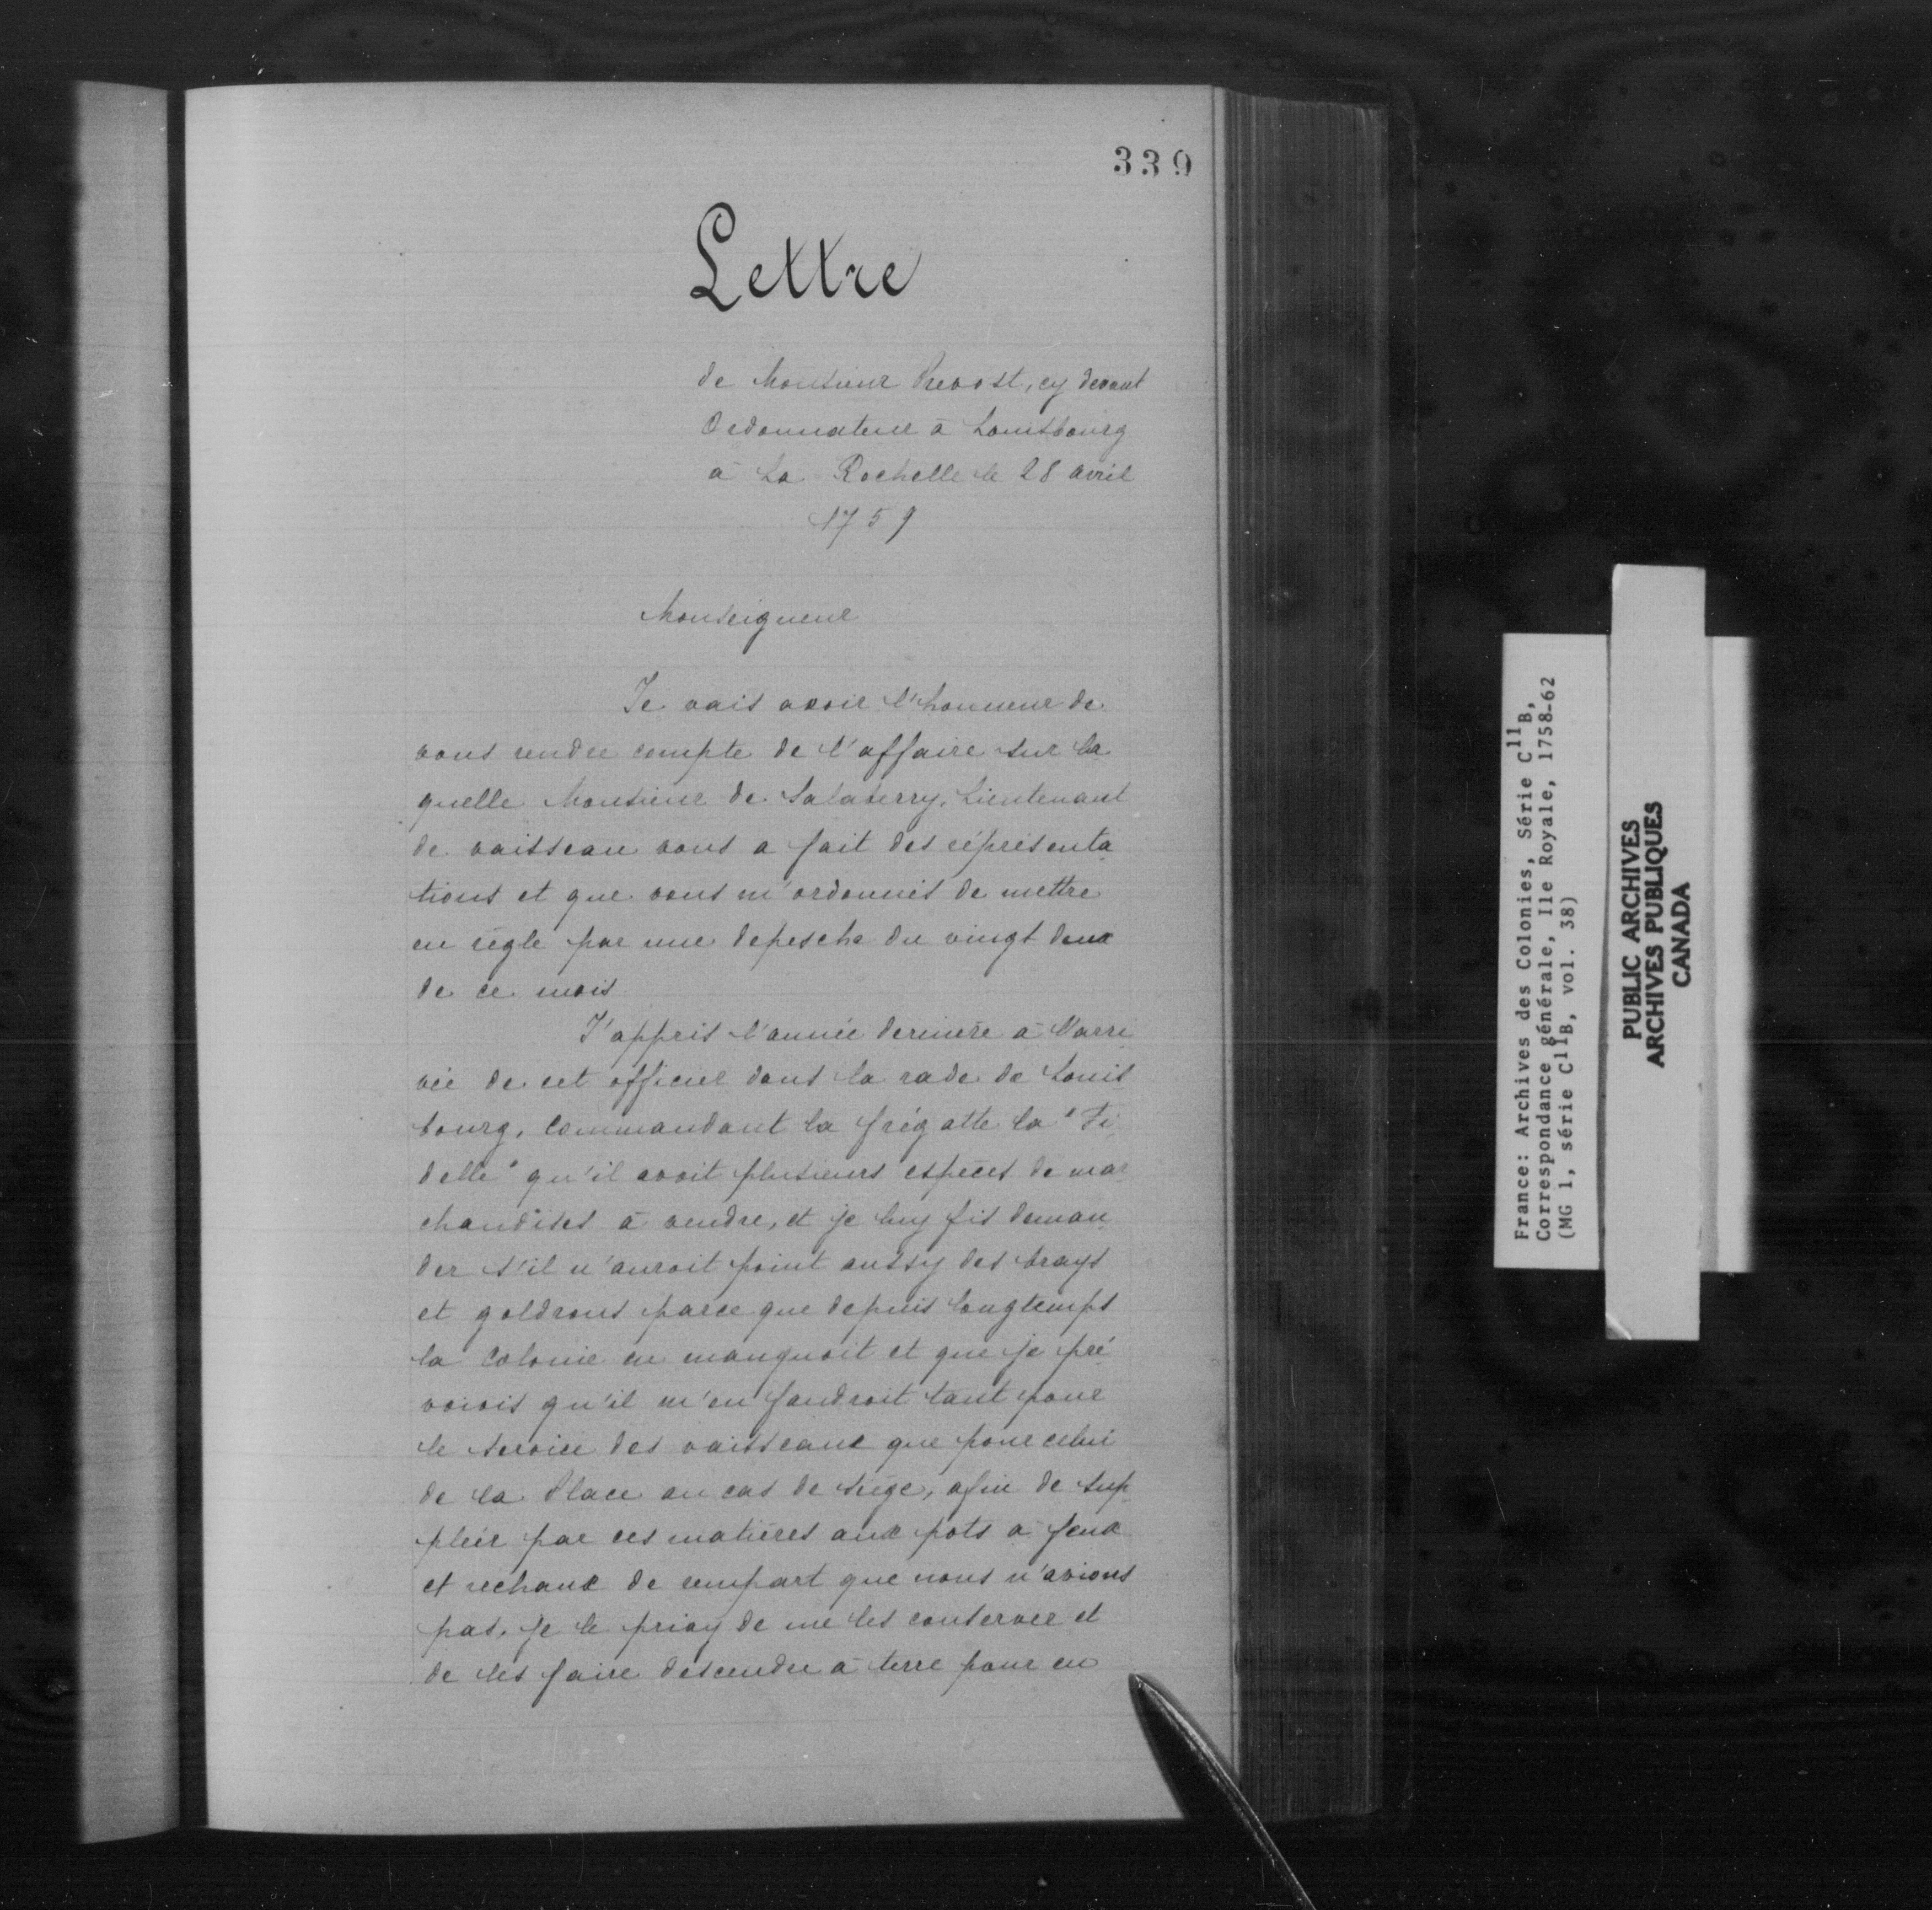 339
Lettre
de Monsieur Prevost, cy devant
Ordonnateur à Louisbourg
à La Rochelle le 28 avril
1759
Monseigneur
Je vais avoir l'honneur de
vous rendre compte de l'affaire sur la
quelle Monsieur de Salaberry, Lieutenant
de vaisseau vous a fait des réprésenta
tions et que vous m'ordonnés de mettre
en règle par une depesche du vingt deux
de ce mois
J'appris l'année dernière à l'arri
vée de cet officier dans la rade de Louis
bourg, Commandant la frégatte la "Fi
delle" qu'il avoit plusieurs espèces de mar
chandises à vendre, et je luy fis deman
der s'il n'auroit point aussy des brays
et goldrons parce que depuis longtemps
la Colonie en manquoit et que je pré
voiois qu'il m'en faudroit tant pour
le service des vaisseaux que pour celui
de la Place au cas de siège, afin de sup
pléer par ces matières aux pots à feux
et rechaux de rempart que nous n'avions
pas, je le priay de me les conserver et
de les faire descendre à terre pour en
France: Archives des Colonies, Série C11B,
Correspondance générale, Ile Royale, 1758-62
(MG 1, série C11B, vol. 38)
PUBLIC ARCHIVES
ARCHIVES PUBLIQUES
CANADA